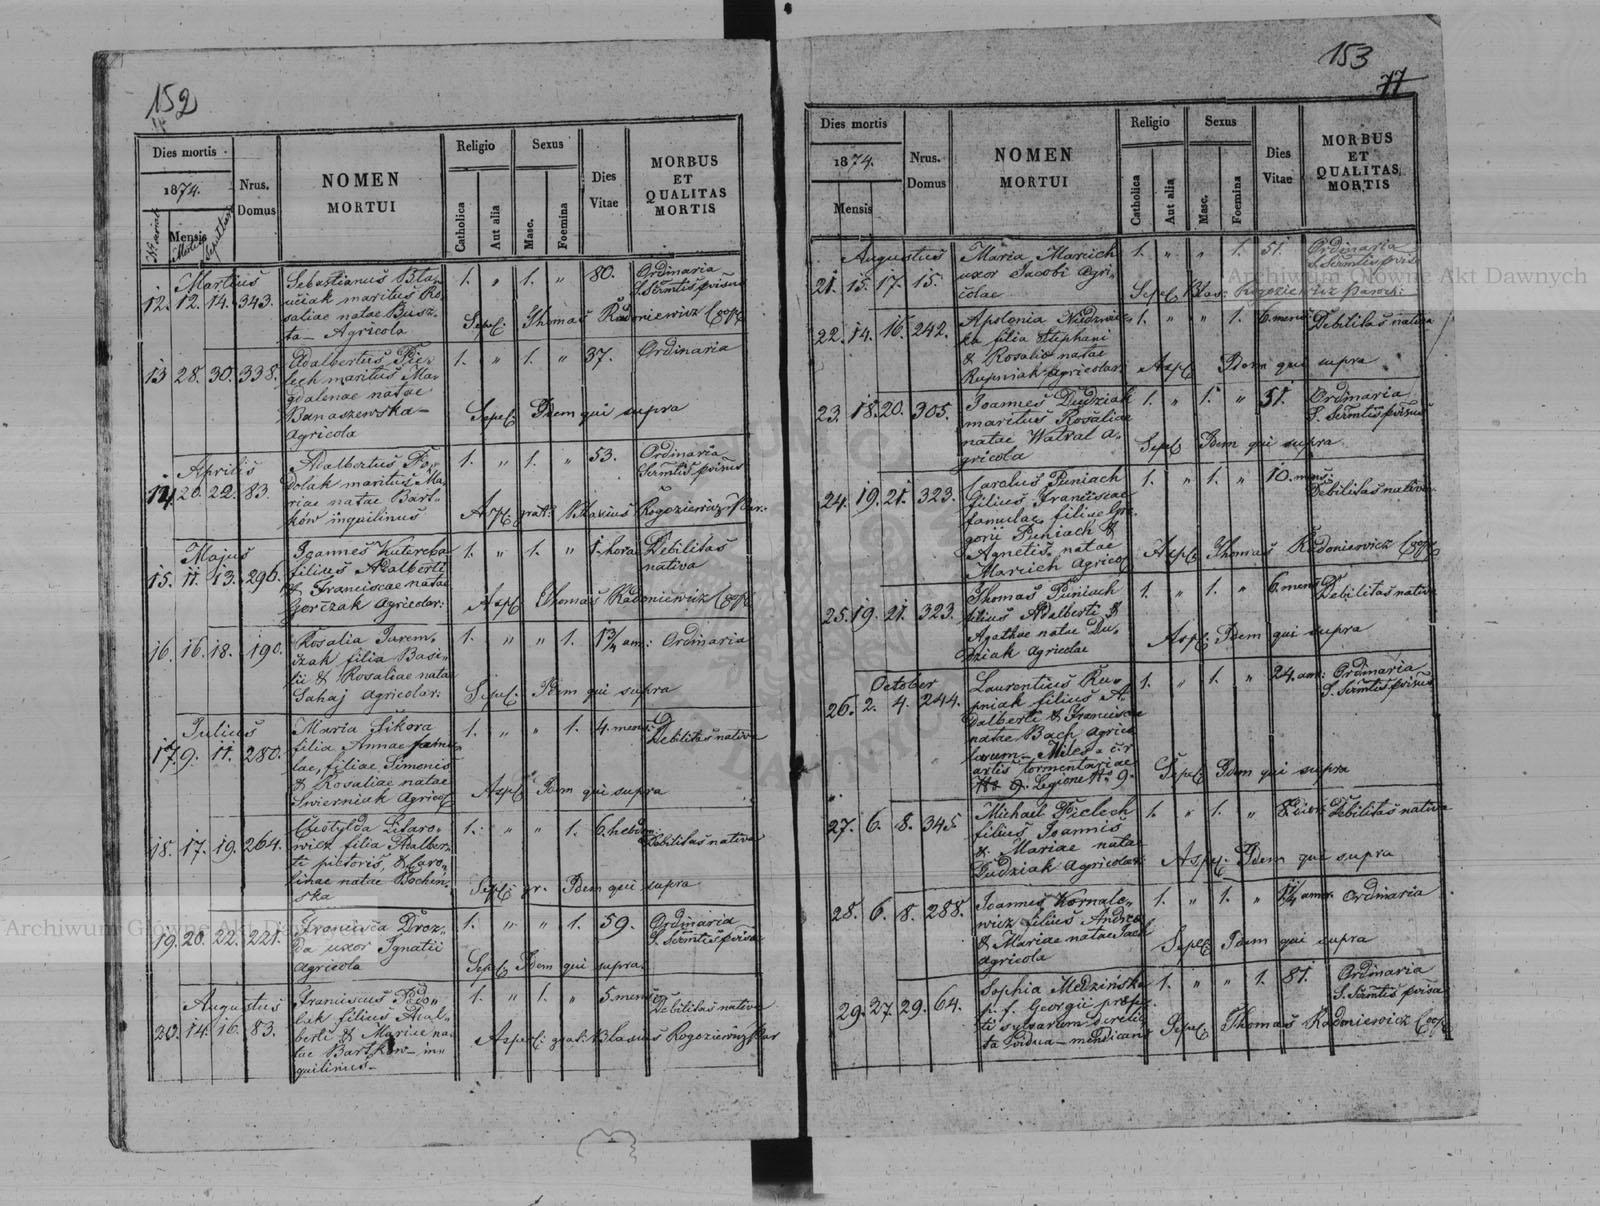 152
Dies mortis
1874.
Nrus.
Domus
NOMEN
MORTUI
Religio
Sexus
Dies
Vitae
MORBUS
ET
QUALITAS
MORTIS
Mensis
Catholica
Aut alia
Masc.
Foemina
Martius
12. 12. 14. 343.
Sebastianus
maritus Ro-
saliae natae
Agricola
1. " 1. " 80. Ordinaria
Sepel: Thomas Radoniewicz Coop
13 28. 30. 338.
Adalbertus Pie-
lech maritus Ma-
gdalenae natae
Banaszewska
Agricola
1. " 1. " 37. Ordinaria
Sepel: Idem qui supra
Aprilis
14. 20. 22. 83.
Adalbertus Po-
dolak maritus Ma-
riae natae Bart-
ków inquilinus
1. " 1. " 53. Ordinaria
Rogoziewicz Par:
Majus
15. 11. 13. 296.
Joannes Kutereba
filius Adalberti
& Franciscae natae
Gorczak Agricolar:
1. " 1. " 1 hora Debilitas
nativa
Asp: Thomas Radoniewicz Coop
16. 16. 18. 190.
Rosalia Jurem-
czak filia Basi-
lii & Rosaliae natae
Sahaj Agricolar:
1. " " 1. 1 3/4 am: Ordinaria
Sepel: Idem qui supra
Julius
17. 9. 11. 280.
Maria Sikora
filia Annae famu-
lae, filiae Simonis
& Rosaliae natae
Swierniak Agricol
1. " " 1. 4. mens: Debilitas nativa
Asp: Idem qui supra
18. 17. 19. 264.
filia Adalber-
ti pictoris, & Caro-
linae natae Bochen-
ska
1. " " 1. 6. hebdom: Debilitas nativa
Sepel: gr. Idem qui supra
19. 20. 22. 221.
Francisca Droz-
da uxor Ignatii
Agricola
1. " " 1. 59. Ordinaria
Sepel: Idem qui supra.
Augustus
20. 14. 16. 83.
Franciscus Podo-
lak filius Adal-
berti & Mariae na-
tae Bartków in-
quilinus
1. " 1. " 5. mens: Debilitas nativa
Blasius Rogoziewicz Par
153
77
Dies mortis
1874.
Mensis
Nrus.
Domus
NOMEN
MORTUI
Religio
Sexus
Dies
Vitae
MORBUS
ET
QUALITAS
MORTIS
Catholica
Aut alia
Masc.
Foemina
Augustus
21. 15. 17. 15.
Maria Marich
uxor Jacobi Agri-
colae
1. " " 1. 51. Ordinaria
Sepel: Blas: Rogoziewicz Paroch:
22. 14. 16. 242.
Apolonia
filia Stephani
& Rosaliae natae
Rupniak Agricolar:
1. " " 1. 6. mens Debilitas nativa
Asp: Idem qui supra
23. 18. 20. 305.
Joannes Dudziak
maritus Rosaliae
natae Watral A-
gricola
1. " 1. " 51. Ordinaria
Sepel: Idem qui supra
24. 19. 21. 323.
Carolus Puniach
filius Franciscae
famulae, filiae Gre-
gorii Puniach &
Agnetis natae
Marich Agricol
1. " 1. " 10. mens Debilitas nativa
Asp: Thomas Radoniewicz Coop
25. 19. 21. 323.
Thomas Puniach
filius Adalberti &
Agathae natae Du-
dziak Agricolae
1. " 1. " 6. mens Debilitas nativa
Asp: Idem qui supra
October
26. 2. 4. 244.
Laurentius Ru-
pniak filius A-
dalberti & Franciscae
natae Bach Agrico-
larum Miles
artis tormentariae
Legione No 9.
1. " 1. " 24. ann: Ordinaria
Sepel: Idem qui supra
27. 6. 8. 345
Michael Pielech
filius Joannis
& Mariae natae
Dudziak Agricolar:
1. " 1. " Debilitas nativa
Asp: Idem qui supra
28. 6. 8. 288.
Joannes Kornale-
wicz filius Andreae
& Mariae natae
Agricola
1. " 1. " Ordinaria
Sepel: Idem qui supra
29. 27. 29. 64.
Sophia Medzińska
p. f. Georgii
sylvarum derelic-
ta vidua mendicans
1. " " 1. 81. Ordinaria
Sepel: Thomas Radoniewicz Coop
Archiwum Główne Akt Dawnych
Archiwum Główne Akt Dawnych